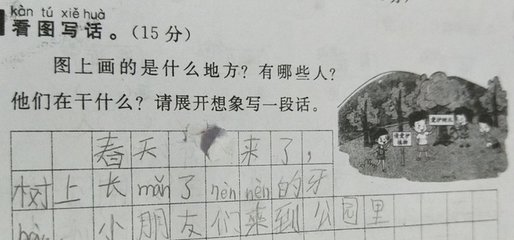 kàn tú xiě huà
看图写话。(15分)
图上画的是什么地方？有哪些人？
他们在干什么？请展开想象写一段话。
爱护树木
春天 来了，
树上长mǎn了nèn nèn的牙
小朋友们来到公园里